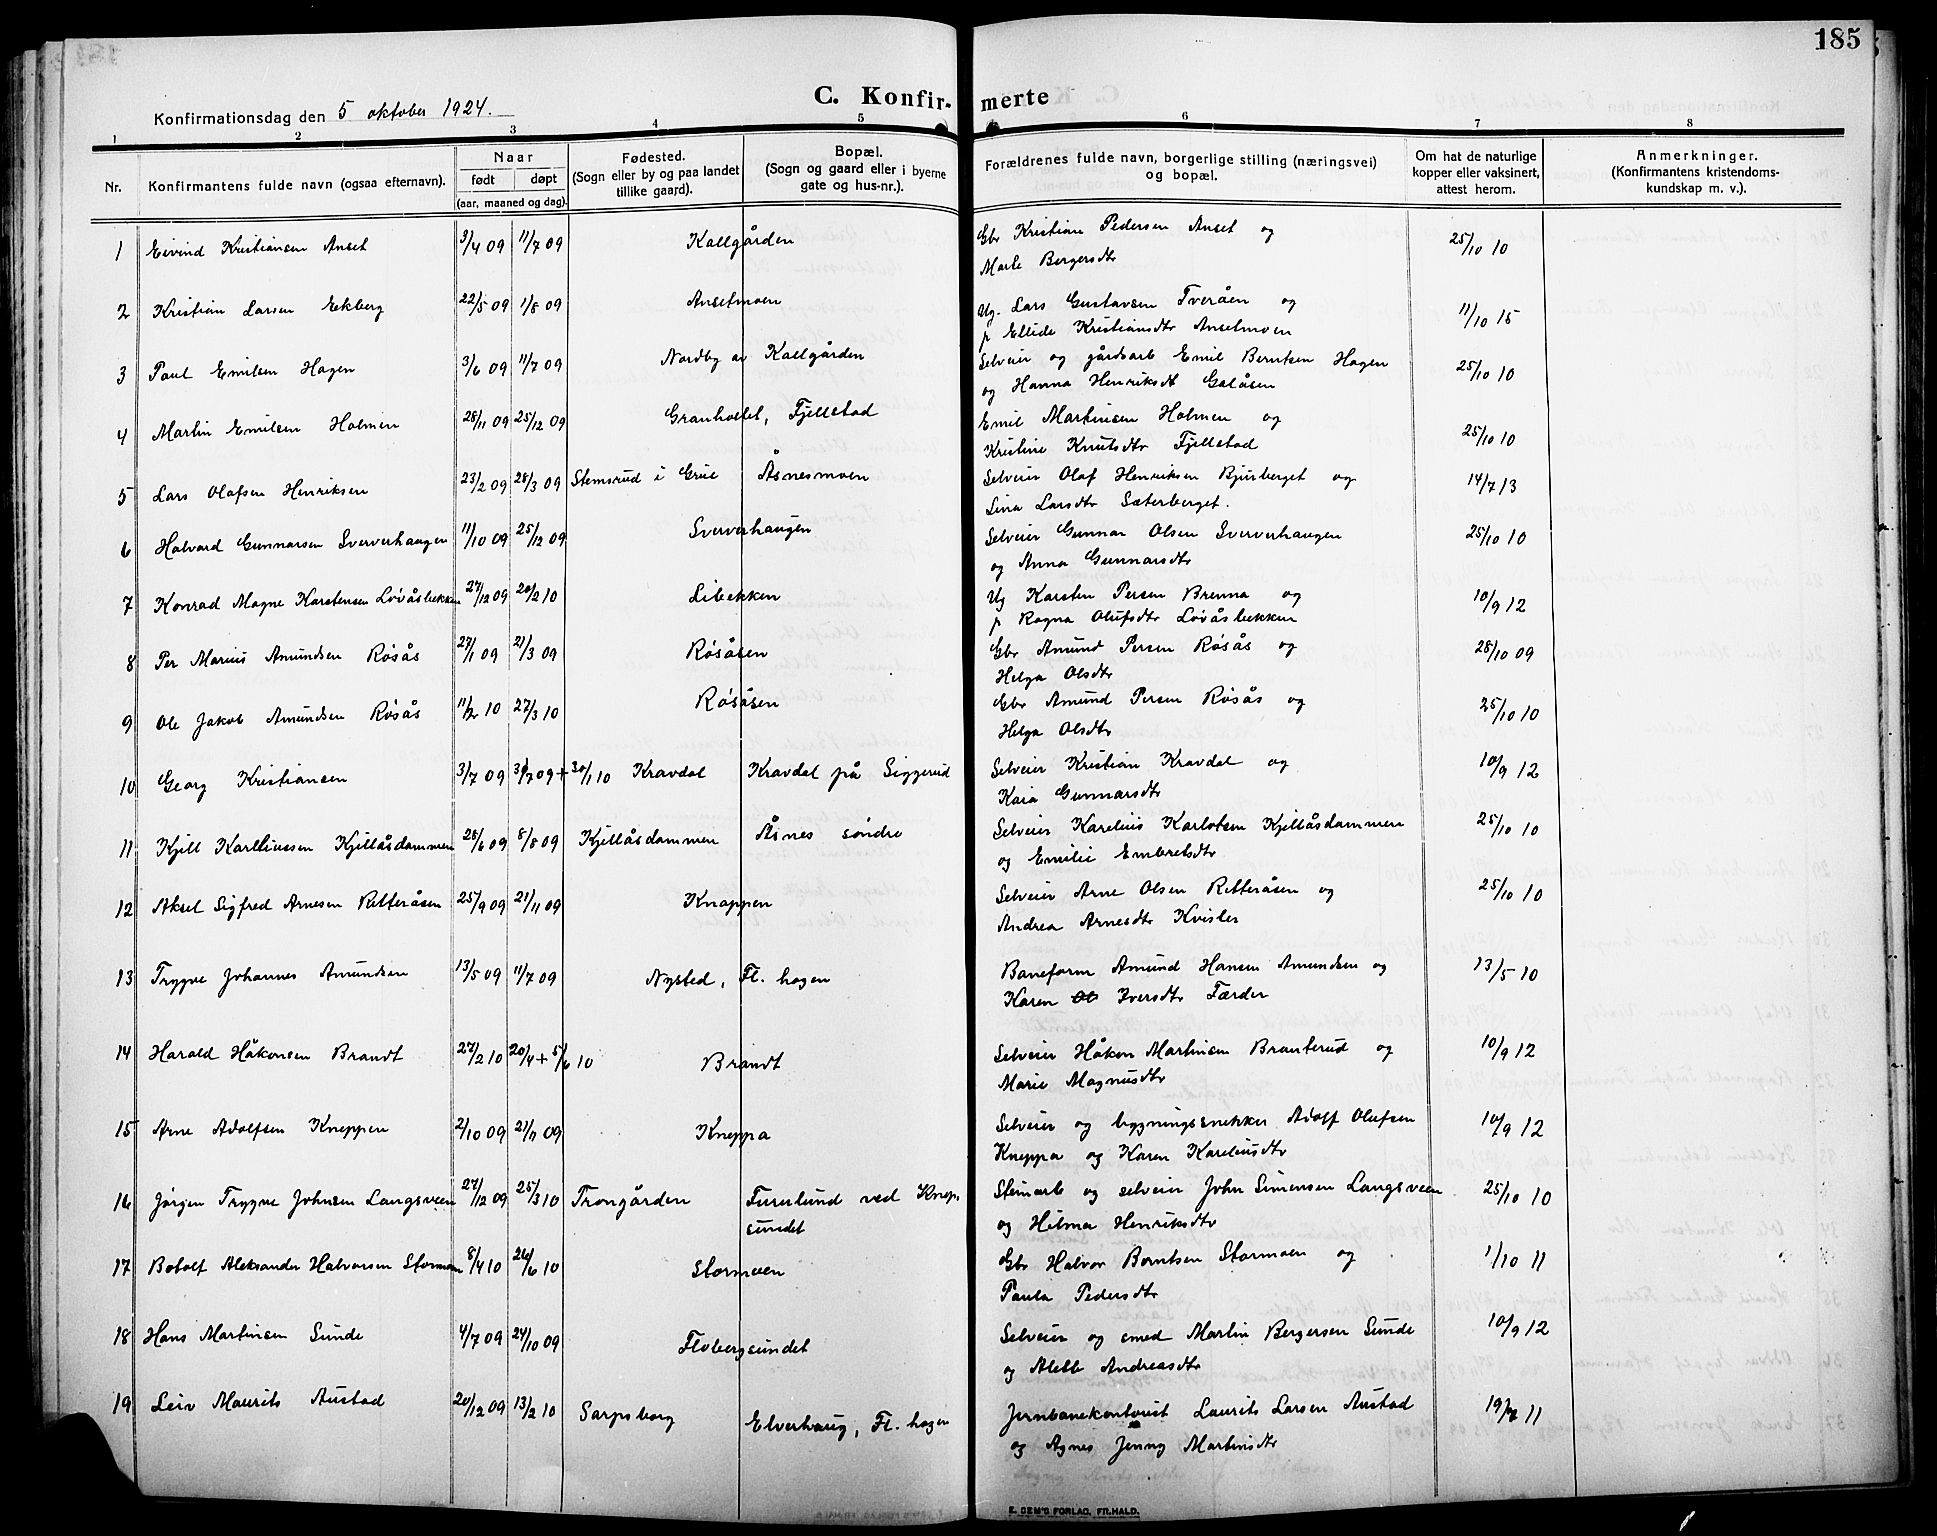 185
C. Konfir- merte
Konfirmationsdag den 5 oktober 1924.
1 2 3 4 5 6 7 8
Nr. Konfirmantens fulde navn (ogsaa efternavn). Naar født døpt (aar, maaned og dag). Fødested. (Sogn eller by og paa landet tillike gaard). Bopæl. (Sogn og gaard eller i byerne gate og hus-nr.). Forældrenes fulde navn, borgerlige stilling (næringsvei) og bopæl. Om hat de naturlige kopper eller vaksinert, attest herom. Anmerkninger. (Konfirmantens kristendoms-kundskap m. v.).
1 Eivind Kristiansen Anset 3/4 09 11/7 09 Kallgården Gbr Kristian Pedersen Anset og 25/10 10
Marte Bergersdtr
2 Kristian Larsen Eekberg 22/5 09 1/8 09 Ansetmoen Ug. Lars Gustavsen Tveråen og 11/10 15
p Ellide Kristiansdtr Ansetmoen
3 Paul Emilsen Hagen 3/6 09 11/7 09 Nordby av Kallgården Selveier og gårdsarb Emil Berntsen Hagen 25/10 10
og Hanna Henriksdt Galåsen
4 Martin Emilsen Holmen 28/11 09 25/12 09 Granholtet, Fjellstad Emil Martinsen Holmen og 25/10 10
Kristine Knutsdtr Fjellstad
5 Lars Olafsen Henriksen 23/2 09 28/3 09 Stemsrud i Grue Åsnesmoen Selveier Olaf Henriksen Bjurberget og 14/7 13
Lina Larsdtr Sæterberget.
6 Halvard Gunnarsen Sververhaugen 11/10 09 25/12 09 Sververhaugen Selveier Gunnar Olsen Sververhaugen 25/10 10
og Anna Gunnarsdtr
7 Konrad Magne Karstensen Løvåsbekken 27/12 09 20/2 10 Libekken Ug Karsten Persen Brenna og 10/9 12
p Ragna Olufsdtr Løvåsbekken
8 Per Marius Amundsen Røsås 27/1 09 21/3 09 Røsåsen Gbr Amund Persen Røsås og 28/10 09
Helga Olsdtr
9 Ole Jakob Amundsen Røsås 11/2 10 27/3 10 Røsåsen Gbr Amund Persen Røsås og 25/10 10
Helga Olsdtr
10 Georg Kristiansen 3/7 09 31/7 09 + 30/1 10 Kravdal Kravdal på Siggerud Selveier Kristian Kravdal og 10/9 12
Kaia Gunnarsdtr
11 Kjell Kareliussen Kjellåsdammen 28/6 09 8/8 09 Kjellåsdammen Åsnes søndre Selveier Karelius Karlotsen Kjellåsdammen 25/10 10
og Emilie Embretsdtr
12 Aksel Sigfred Arnesen Retteråsen 25/9 09 21/11 09 Knappen Selveier Arne Olsen Retteråsen og 25/10 10
Andrea Arnesdtr Kvisler
13 Trygve Johannes Amundsen 13/5 09 11/7 09 Nysted, Fl. hagen Baneform Amund Hansen Amundsen og 13/5 10
Karen Iversdtr Færder
14 Harald Håkonsen Brandt 27/2 10 20/4 + 5/6 10 Brandt Selveier Håkon Martinsen Branterud og 10/9 12
Marie Magnusdtr
15 Arne Adolfsen Kneppen 2/10 09 21/11 09 Kneppa Selveier og bygningssnekker Adolf Olufsen 10/9 12
Kneppa og Karen Kareliusdtr
16 Jørgen Trygve Johnsen Langsveen 27/12 09 25/3 10 Trongården Furulund ved Knep. Steinarb og selveier John Simensen Langsveen 25/10 10
sundet og Hilma Henriksdtr
17 Botolf Aleksander Halvorsen Stormoen 8/4 10 26/6 10 Stormoen Gbr Halvor Berntsen Stormoen og 1/10 11
Paula Pedersdtr
18 Hans Martinsen Sunde 4/7 09 24/10 09 Flobergsundet Selveier og smed Martin Bergersen Sunde 10/9 12
og Alette Andreasdtr
19 Leiv Maurits Austad 20/12 09 13/2 10 Sarpsborg Elverhaug, Fl. hagen Jernbanekontorist Laurits Larsen Austad 11
og Agnes Jenny Martinsdtr
E. SEM'S FORLAG, FR.HALD.